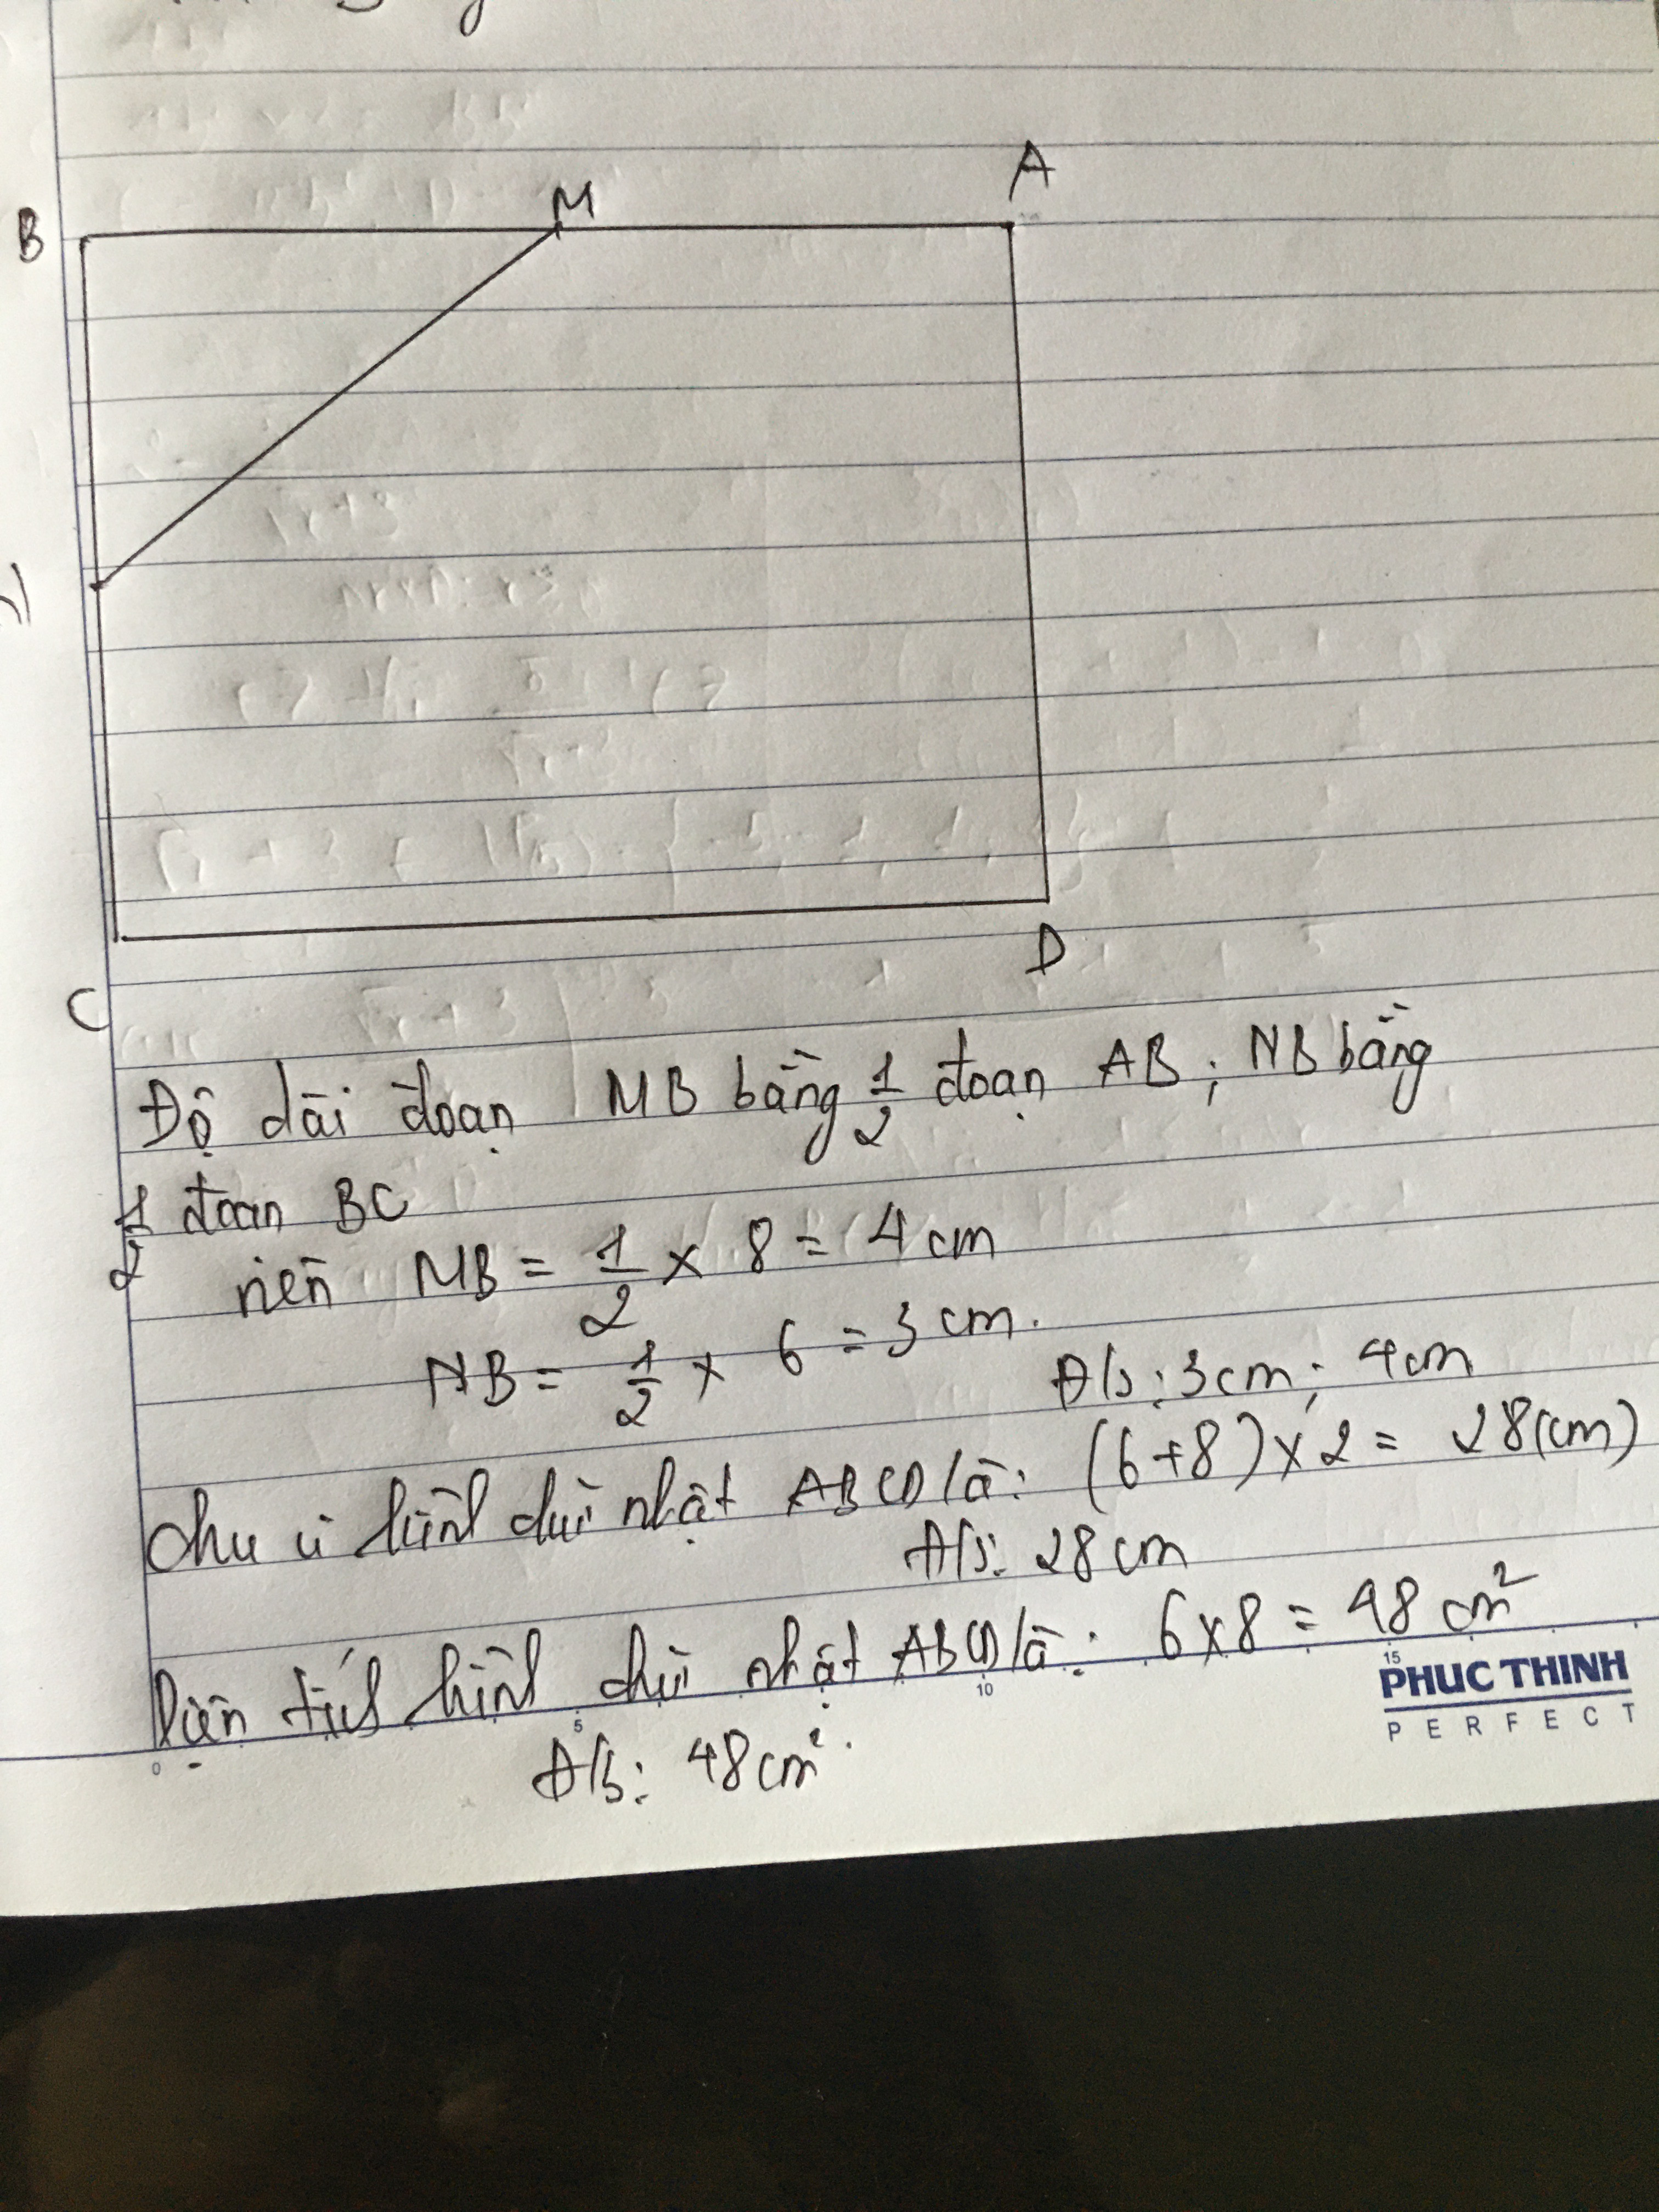 M
A
B
D
C
Độ dài đoạn MB bằng 1/2 đoạn AB; NB bằng
1/2 đoạn BC
nên MB = 1/2 x 8 = 4 cm
NB = 1/2 x 6 = 3 cm.
Đ/s: 3cm; 4cm
Chu vi hình chữ nhật ABCD là: (6+8) x 2 = 28 (cm)
Đ/s: 28 cm
Diện tích hình chữ nhật ABCD là: 6x8 = 48 cm²
Đ/s: 48 cm².
0 5 10 15
PHUC THINH
PERFECT